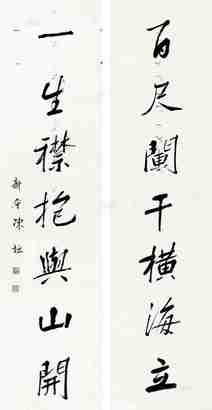 百尺闌干橫海立
一生襟抱與山開
新 陳